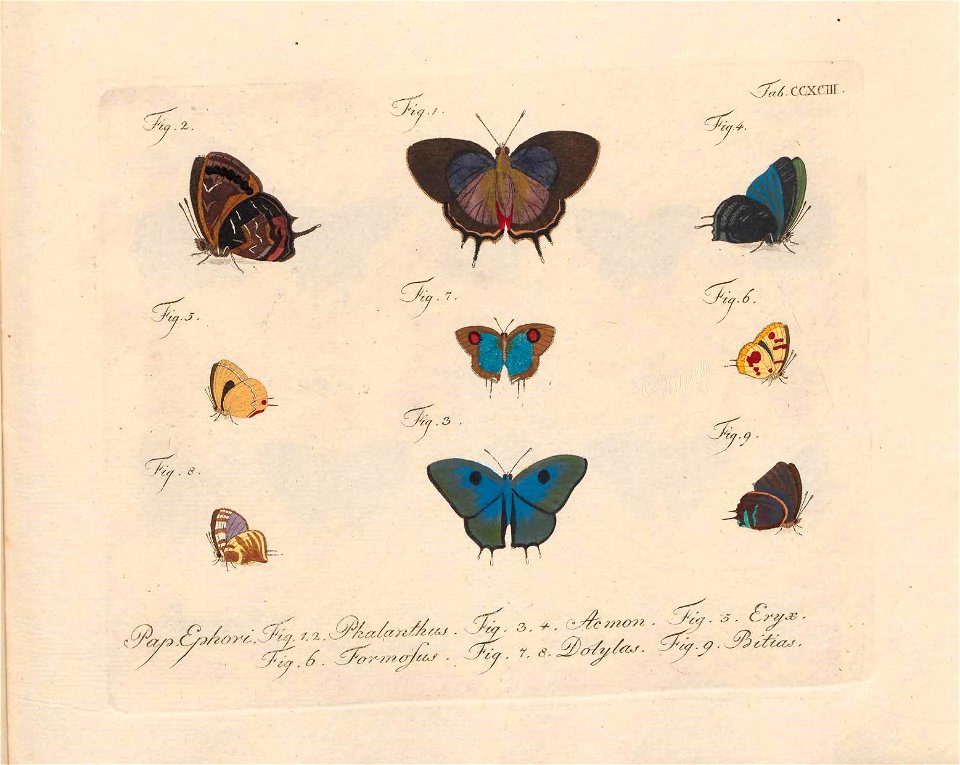 Tab. CCXCIII.
Fig. 2.
Fig. 1.
Fig. 4.
Fig. 5.
Fig. 7.
Fig. 6.
Fig. 3.
Fig. 8.
Fig. 9.
Pap. Ephori. Fig. 1. 2. Phalanthus. Fig. 3. 4. Acmon. Fig. 5. Eryx.
Fig. 6. Formoſus. Fig. 7. 8. Dolylas. Fig. 9. Bitias.